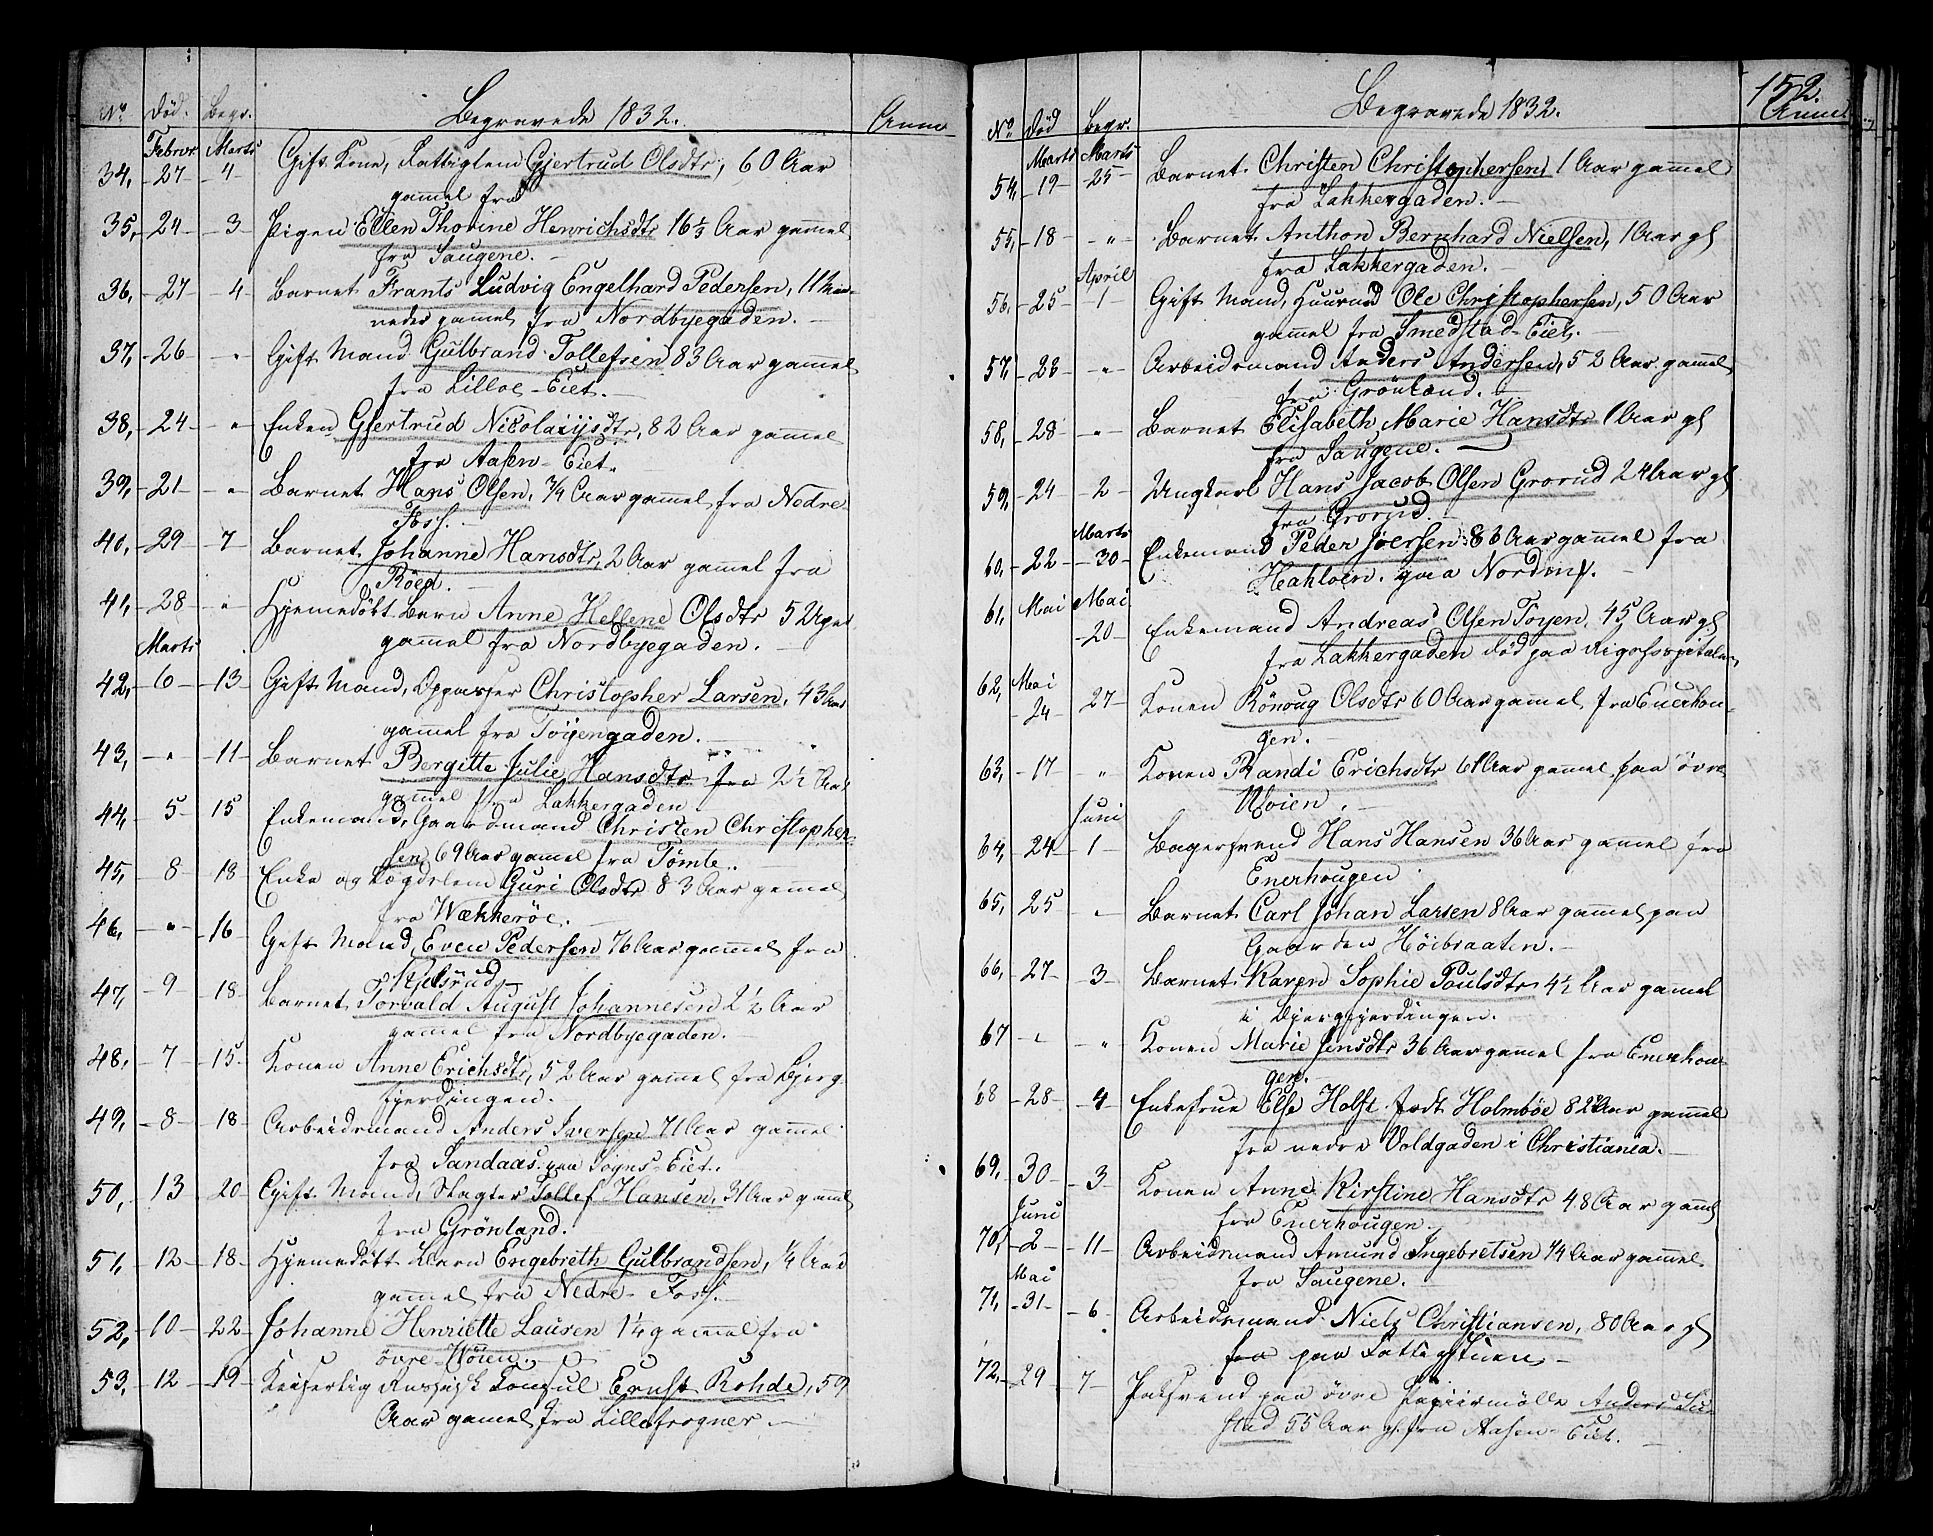 No Død. Begr. Begravede 1832. Anm
Februar Marts
34, -27 -4- Gift Kone, Fattiglem Gjertrud Olsdtr, 60 Aar
gammel fra
35, -24- -3 Pigen Ellen Thorine Henrichsdtr 16 1/3 Aar gammel
fra Saugene.-
36, -27 -4 Barnet Frants Ludvig Engelhard Pedersen, 11 Maa-
neder gammel fra Nordbyegaden.-
37, -26 - " Gift Mand Gulbrand Tollefsen 83 Aar gammel
fra Lilloe-Eiet.-
38, -24 - " Enken Gjertrud Nicolaiysdtr, 82 Aar gammel
fra Aasen-Eiet.
39, -21 - " Barnet Hans Olsen, 3/4 Aar gammel fra Nedre
Foss.-
40, -29 -7 Barnet Johanne Hansdtr, 2 Aar gammel fra
Röed.
41, -28 " Hjemedöbt Barn Anne Hellene Olsdtr 5 Uger
gammel fra Nordbyegaden.-
Marts
42, -6 -13 Gift Mand, Oppasser Christopher Larsen, 43 Aar
gammel fra Töyengaden.-
43, - " -11- Barnet Bergitte Julie Hansdtr fra 2 1/2 Aar
gammel fra Lakkergaden.
44, -5 15 Enkemand, Gaardmand Christen Christopher-
sen 69 Aar gammel fra Tömte..
45, -8 -18 Enke og Lægdslem Guri Olsdtr 83 Aar gammel
fra Wækkeröe.-
46, - " - -16 Gift Mand, Even Pedersen 76 Aar gammel fra
Kjelsrud-
47, -9 -18- Barnet Torvald August Johannesen 2 1/2 Aar
gammel fra Nordbyegaden.-
48, -7 -15. Konen Anne Erichsdtr, 52 Aar gammel fra Bjerg-
fjerdingen.-
49, -8- 18 Arbeidsmand Anders Iversen 71 Aar gammel
fra Sandaas paa Sogns-Eiet.
50, 13 -20 Gift Mand, Slagter Tollef Hansen, 31 Aar gammel
fra Grönland.
51, -12- -18- Hjemedöbt Barn Engebreth Gulbrandsen, 1/4 Aar
gammel fra Nedre-Foss.-
52, -10 -22- Johanne Henriette Lausen 1 1/4 gammel fra
övre-Woien.-
53, -12 -19- Keiserlig Russisk Consul Ernst Rohde, 59
Aar gammel fra Lillefrogner.-
152.
No Död Begr. Begravede 1832. Anm
Marts Marts
54, -19 25- Barnet Christen Christophersen, 1 Aar gammel
fra Lakkergaden.-
55, -18 - " - Barnet Anthon Bernhard Nielsen, 1 Aar gl
fra Lakkergaden.-
April
56, -25 -1 Gift Mand, Huusmd Ole Christophersen, 50 Aar
gammel fra Smedstad-Eiet.-
57, -23 - " - Arbeidsmand Anders Andersen, 52 Aar gammel
fra Grönland.-
58, -28 - " - Barnet Elisabeth Marie Hansdtr 1 Aar gl
fra Saugene.-
59, -24 -2- Ungkarl Hans Jacob Olsen Grorud 24 Aar gl
fra Grorud.-
Marts
60, -22 -30- Enkemand Peder Joersen 86 Aar gammel fra
Hahloen paa Nordmk.-
61, Mai Mai
-20- Enkemand Andreas Olsen Töyen, 45 Aar gl
fra Lakkergaden död paa Rigshospitalet,
62, Mai
-24- 27- Konen Rönoug Olsdtr 60 Aar gammel fra Enerhou-
gen.-
63, -17 " Konen Randi Erichsdtr 61 Aar gammel paa övre
Woien.-
Juni
64, -24- -1- Bagersvend Hans Hansen 36 Aar gammel fra
Enerhougen.
65, -25 - Barnet Carl Johan Larsen 8 Aar gammel paa
Gaarden Höibraaten.-
66, -27 -3 Barnet Karen Sophie Paulsdtr 4 1/2 Aar gammel
i Bjergfjerdingen.
67 - " - " Konen Marie Jensdtr 36 Aar gammel fra Enerhou-
gen.-
68 -28- -4 Enkefrue Else Holst födt Holmböe 82 Aar gammel
fra nedre Voldgaden i Christiania.-
69, 30 -3- Konen Anne Kirstine Hansdtr 48 Aar gaml
fra Enerhougen.-
Juni
70, -2- -11- Arbeidsmand Amund Ingebretsen 74 Aar gammel
fra Saugene.
Mai
71, -31- -6- Arbeidsmand Niels Christiansen, 80 Aar gl
fra paa Fattigstuen.-
72, -29 7 paa övre Papiirmölle Anders
stad 55 Aar gl. fra Aasen-Eiet.-